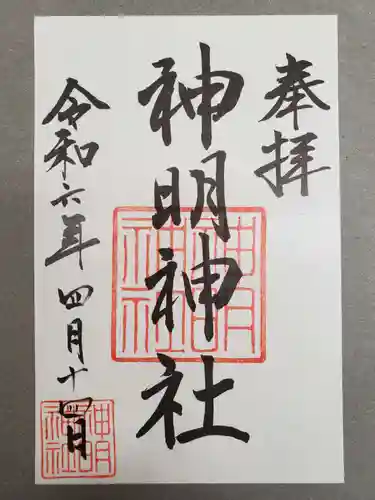 奉拝
神明神社
令和六年四月十四日
神明神社
神明神社